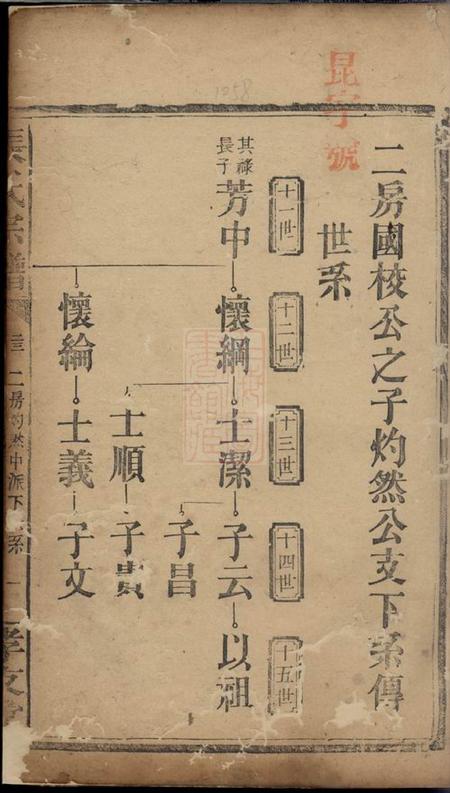 1058
昆字號
二房國校公之子灼然公支下系傳
世系
十一世
十二世
十三世
十四世
十五世
其祿長子
芳中 懷綱 士潔 子云 以祖
子昌
士順 子貴
懷綸 士義 子文
氏宗譜
二房灼然中派下系 一
孝友堂